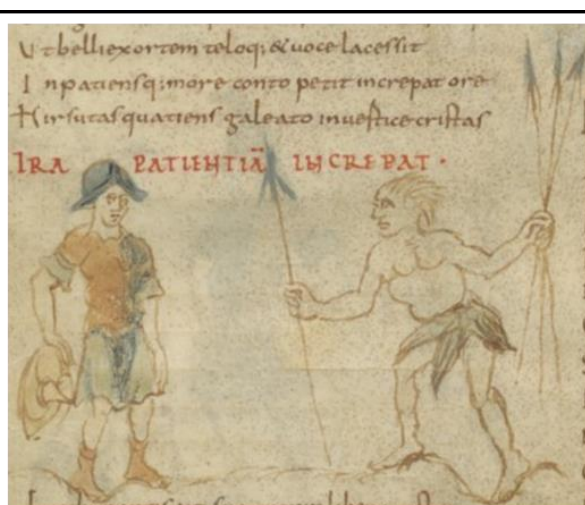 Ut belli exortem teloq; & voce lacessit
Inpatiensq; more conto petit increpat ore
Hirsutas quatiens galeato invertice cristas
IRA PATIENTIĀ INCREPAT ·